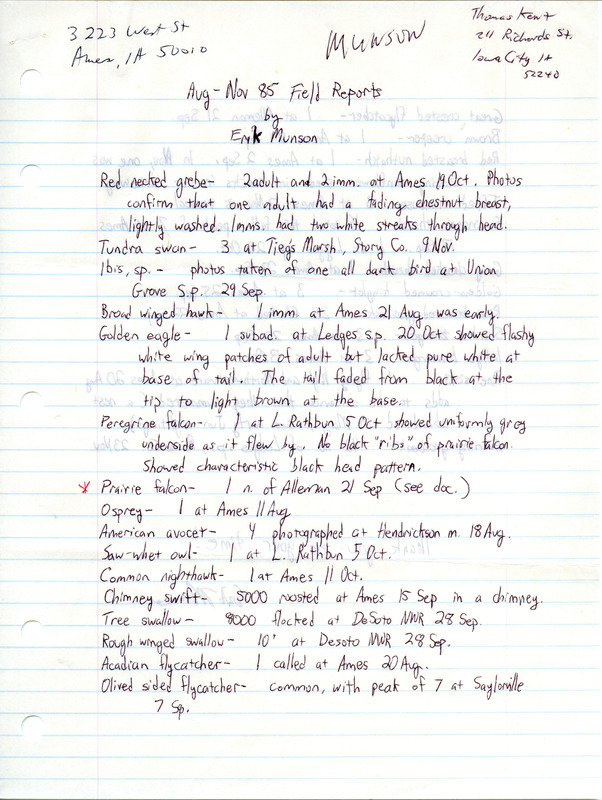 3223 West St
Ames, IA 50010
MUNSON
Thomas Kent
211 Richards St.
Iowa City IA
52240
Aug-Nov 85 Field Reports
by
Erik Munson
Red necked grebe- 2 adult and 2 imm. at Ames 19 Oct. Photos
confirm that one adult had a fading chestnut breast,
lightly washed. Imms. had two white streaks through head.
Tundra swan- 3 at Tiegs Marsh, Story Co. 9 Nov.
Ibis, sp. - photos taken of one all dark bird at Union
Grove S.P. 29 Sep.
Broad winged hawk- 1 imm. at Ames 21 Aug. was early.
Golden eagle- 1 subad. at Ledges s.p. 20 Oct showed flashy
white wing patches of adult but lacked pure white at
base of tail. The tail faded from black at the
tip to light brown at the base.
Peregrine falcon- 1 at L. Rathbun 5 Oct showed uniformly grey
underside as it flew by. No black "ribs" of prairie falcon.
Showed characteristic black head pattern.
* Prairie falcon- 1 n. of Alleman 21 Sep (see doc.)
Osprey- 1 at Ames 11 Aug
American avocet- 4 photographed at Hendrickson m. 18 Aug.
Saw-whet owl- 1 at L. Rathbun 5 Oct.
Common nighthawk- 1 at Ames 11 Oct.
Chimney swift- 5000 roosted at Ames 15 Sep in a chimney.
Tree swallow- 8000 flocked at DeSoto NWR 28 Sep.
Rough winged swallow- 10+ at Desoto NWR 28 Sep.
Acadian flycatcher- 1 called at Ames 20 Aug.
Olived sided flycatcher- common, with peak of 7 at Saylorville
7 Sp.